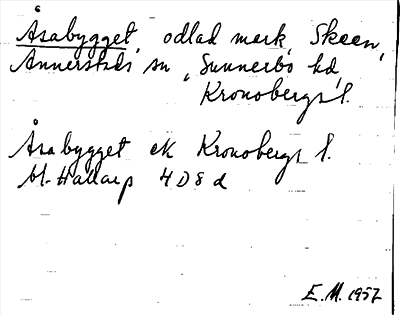 Åsabygget, odlad mark, Skeen,
Annerstads sn, Sunnerbo hd,
Kronobergs l.
Åsabygget ek Kronobergs l.
bl. Hallarp 4D8d
E.M. 1957